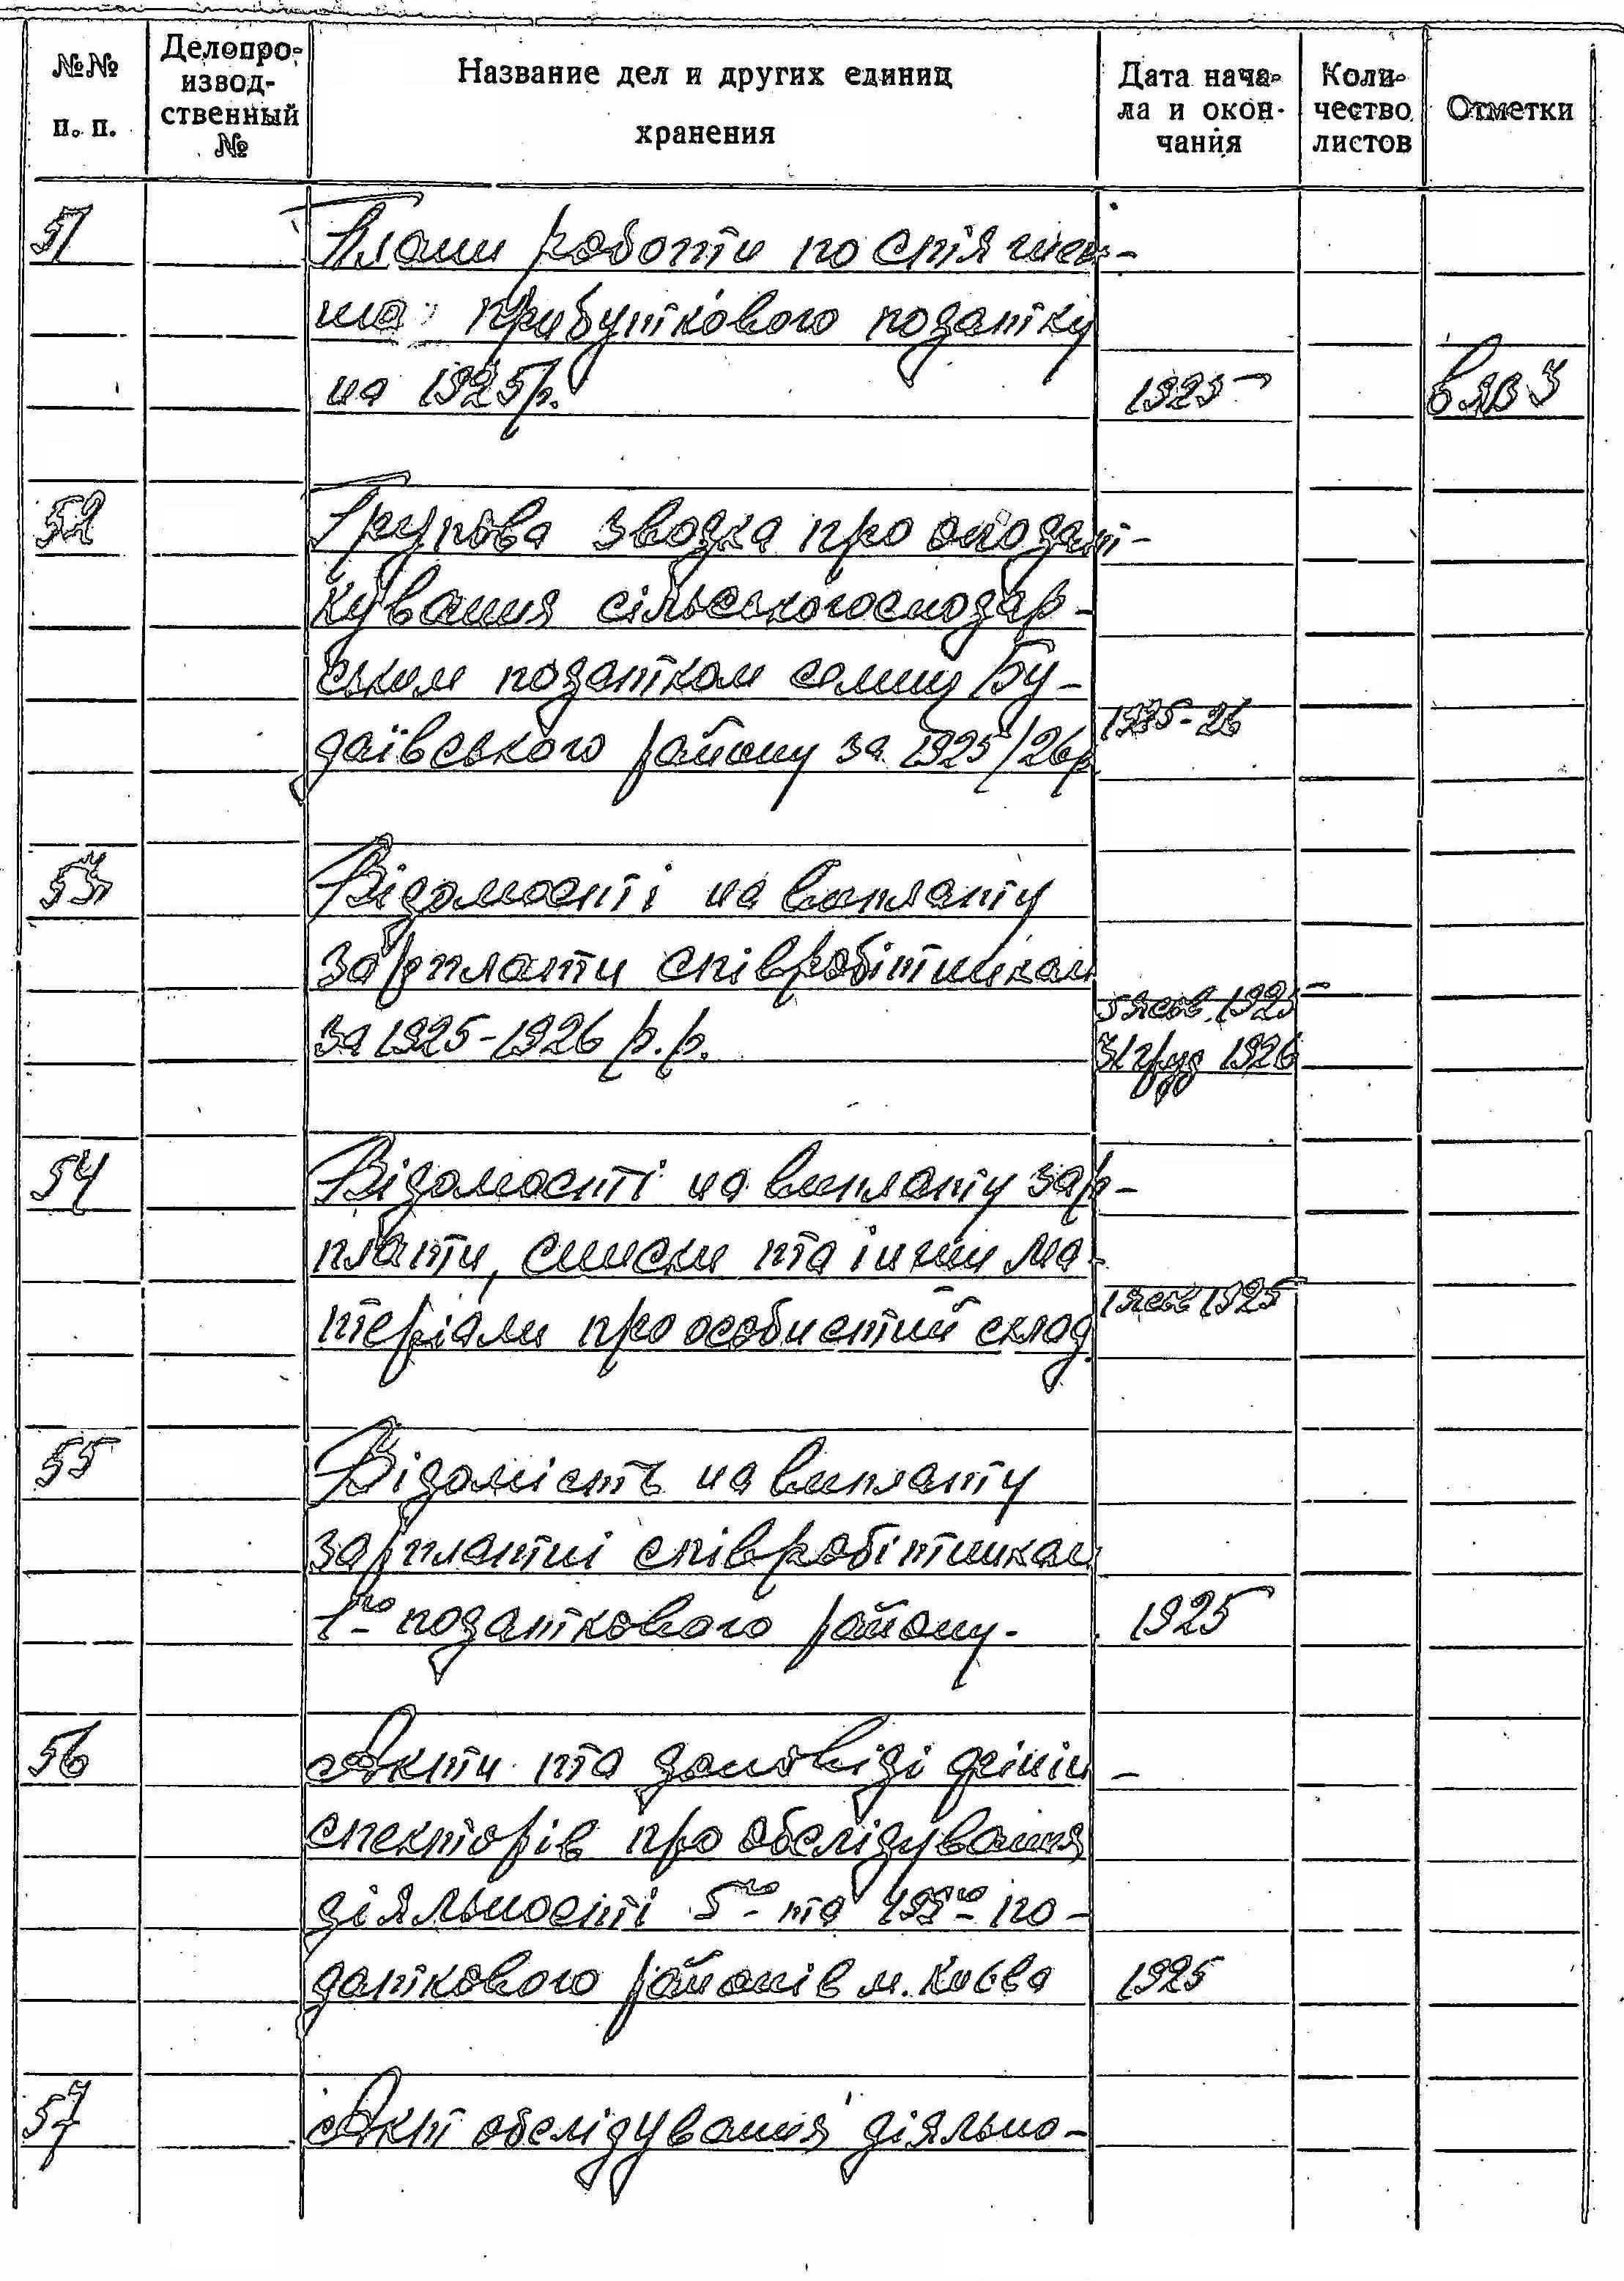 №№ п. п.
Делопро-
извод-
ственный
№
Название дел и других единиц
хранения
Дата нача-
ла и окон-
чания
Коли-
чество
листов
Отметки
51 Плани роботи по стягнен-
ню прибуткового податку
на 1925 р. 1925
52 Групова зводка про оподат-
кування сільськогосподар-
ським податком селищ Бу-
даївського району за 1925/26 р 1925-26
53 Відомості на виплату
зарплати співробітникам
за 1925-1926 р.р. 5 жов. 1925
31 груд 1926
54 Відомості на виплату зар-
плати, списки та інши ма-
теріали про особистий склад 1 жов 1925
55 Відомість на виплату
зарплатні співробітникам
1го податкового району. 1925
56 Акти та доповіді фінін-
спекторів про обслідування
діяльності 5го та по-
даткового районів м. Києва 1925
57 Акт обслідування діяльно-